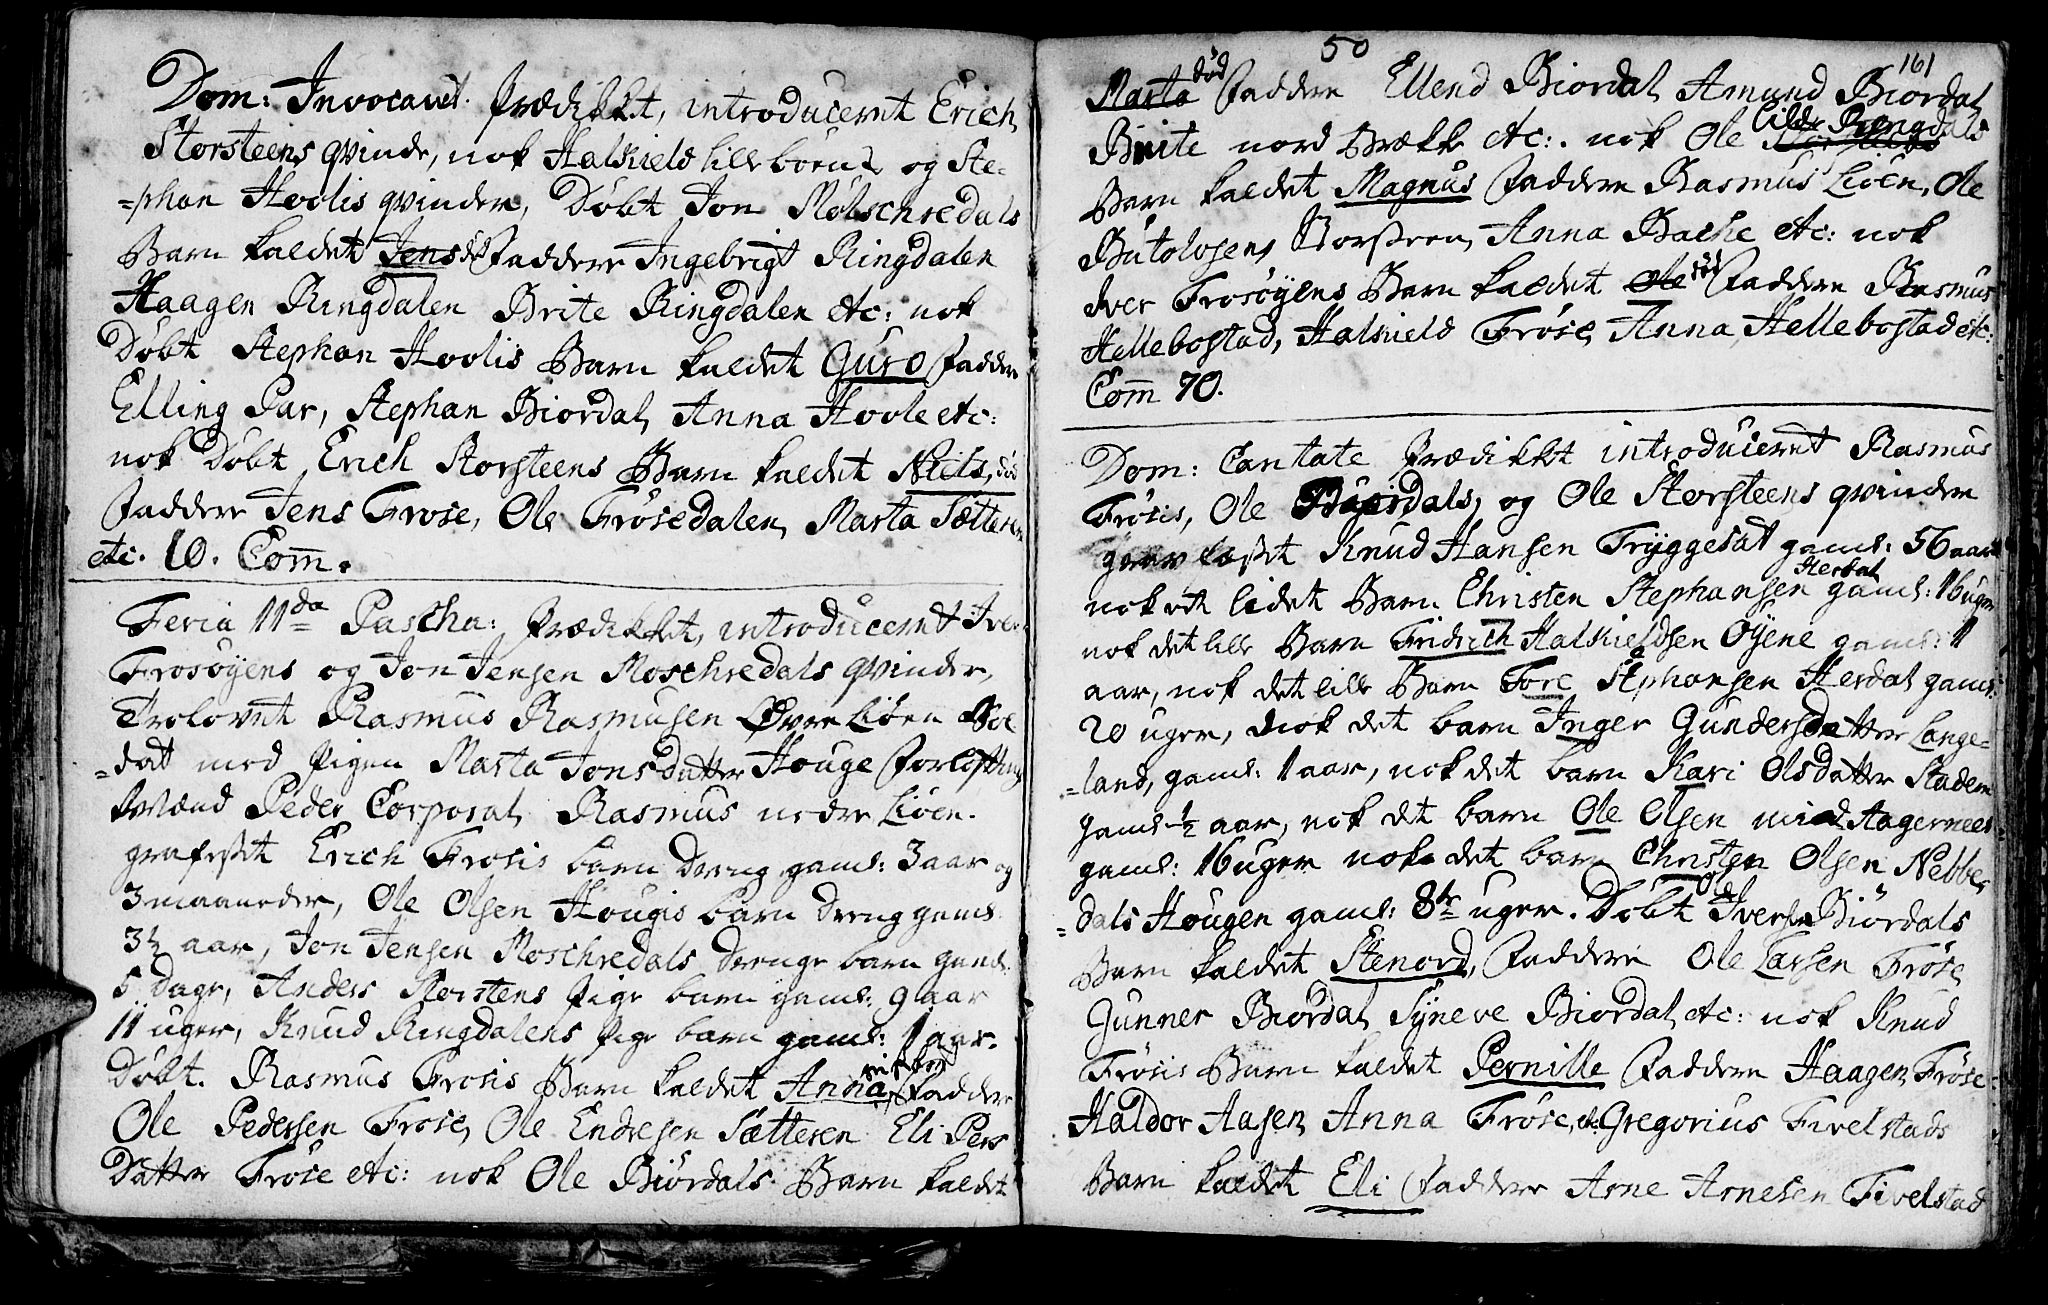 Dom: Invocavit. Prædikket, introduceret Erich
Storsteens qvinde, nok Halkield lille boens og Ste-
-phan Hoolis qvinder, Døbt Jon Molschredals
Barn kaldet Jens død Faddere Ingebrigt Ringdalen
Haagen Ringdalen Brite Ringdalen etc: nok
Døbt Stephan Hoolis Barn kaldet Guro Faddere
Elling Par, Stephan Biordal, Anna Hoole etc:
nok Døbt Erich Storsteens Barn kaldet Niels, død
Faddere Jens Frøse, Ole Frøsedalen, Marta Sætteren
etc. 10. Com.
Feria 11da Pascha: Prædikket, introduceret Iver
Frosøyens og Jon Jensen Moschredals qvinder,
Trolovet Rasmus Rasmusen Øvre Liøen Sol
-dat med Pigen Marta Jonsdatter Houge Forløftnings
Mænd Peder Corporal, Rasmus nedre Liøen.
grafestet Erich Frosis barn dreng gaml: 3 aar og
3 maaneder, Ole Olsen Hougis barn dreng gaml.
3½ aar, Jon Jensen Moschredals drenge barn gaml.
5 dage, Anders Storstens Pige barn gaml: 9 aar
11 uger, Knud Ringdalens Pige barn gaml: 1 aar.
Døbt. Rasmus Frosis Barn kaldet Anna Faddere
Ole Pedersen Frøse, Ole Endresen Sætteren Eli Pers
Datter Frøse etc: nok Ole Biørdals Barn kaldet
50
161
Marta død Faddere Ellend Biordal, Amund Biordal,
Brite nord Brække etc:. nok Ole Lille Ringdals
Barn kaldet Magnus Faddere Rasmus Liøen, Ole
Butolvsens Storsteen, Anna Bache etc: nok
Iver Frosøyens Barn kaldet Ole død Faddere Rasmus
Hellebostad, Halkield Frøse, Anna Hellebostad etc:
Com 70.
Dom: Cantate Prædikket introduceret Rasmus
Frøsis, Ole Biørdals, og Ole Storsteens qvinder
grav fæstet Knud Hansen Tryggestat gaml: 56 aar
nok et lidet Barn Christen Stephansen Herdal gaml: 16 uger
nok det lille Barn Fridrich Halkieldsen Øyene gaml: 1
aar, nok det lille Barn Tore Stephansen Herdal gaml:
20 uger, nok det barn Inger Gundersdatter Lange-
-land, gaml: 1 aar, nok det barn Kari Olsdatter Stadem
gaml ½ aar, nok det barn Ole Olsen mid Aagernees
gaml: 16 uger nok det barn Christen Olsen Nebbe,
-dals Hougen gaml: 8te uger. Døbt Ole Iversen Biørdals
Barn kaldet Stenord, Faddere Ole Larsen Frøse,
Gunner Biordal, Syneve Biordal, etc: nok Knud
Frøsis Barn kaldet Pernille Faddere Haagen Frøse
Haldor Aasen, Anna Frøse, etc: Gregorius Fivelstads
Barn kaldet Eli Faddere Arne Arnesen Fivelstad